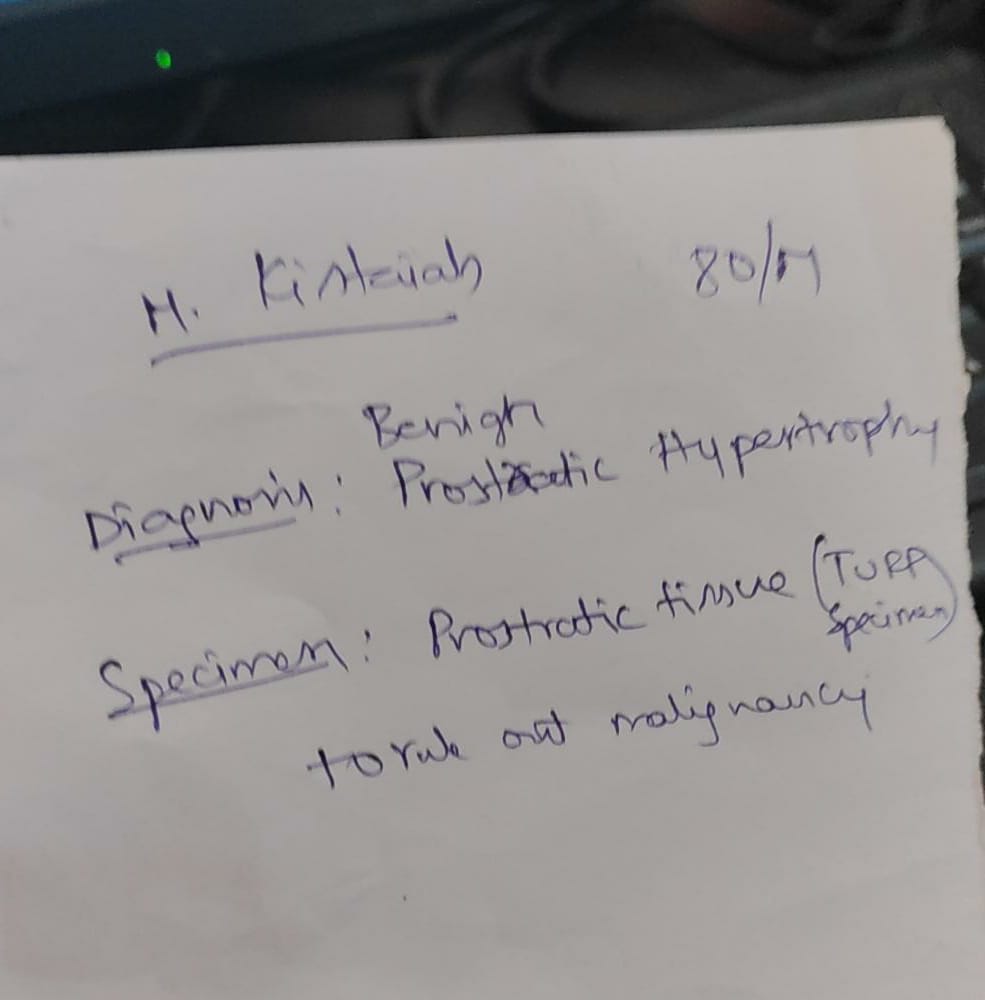 M. Kistaiah 80/M
Benign
Diagnosis: Prostatic Hypertrophy
Specimen: Prostratic tissue (TURP
Specimen)
to rule out malignancy